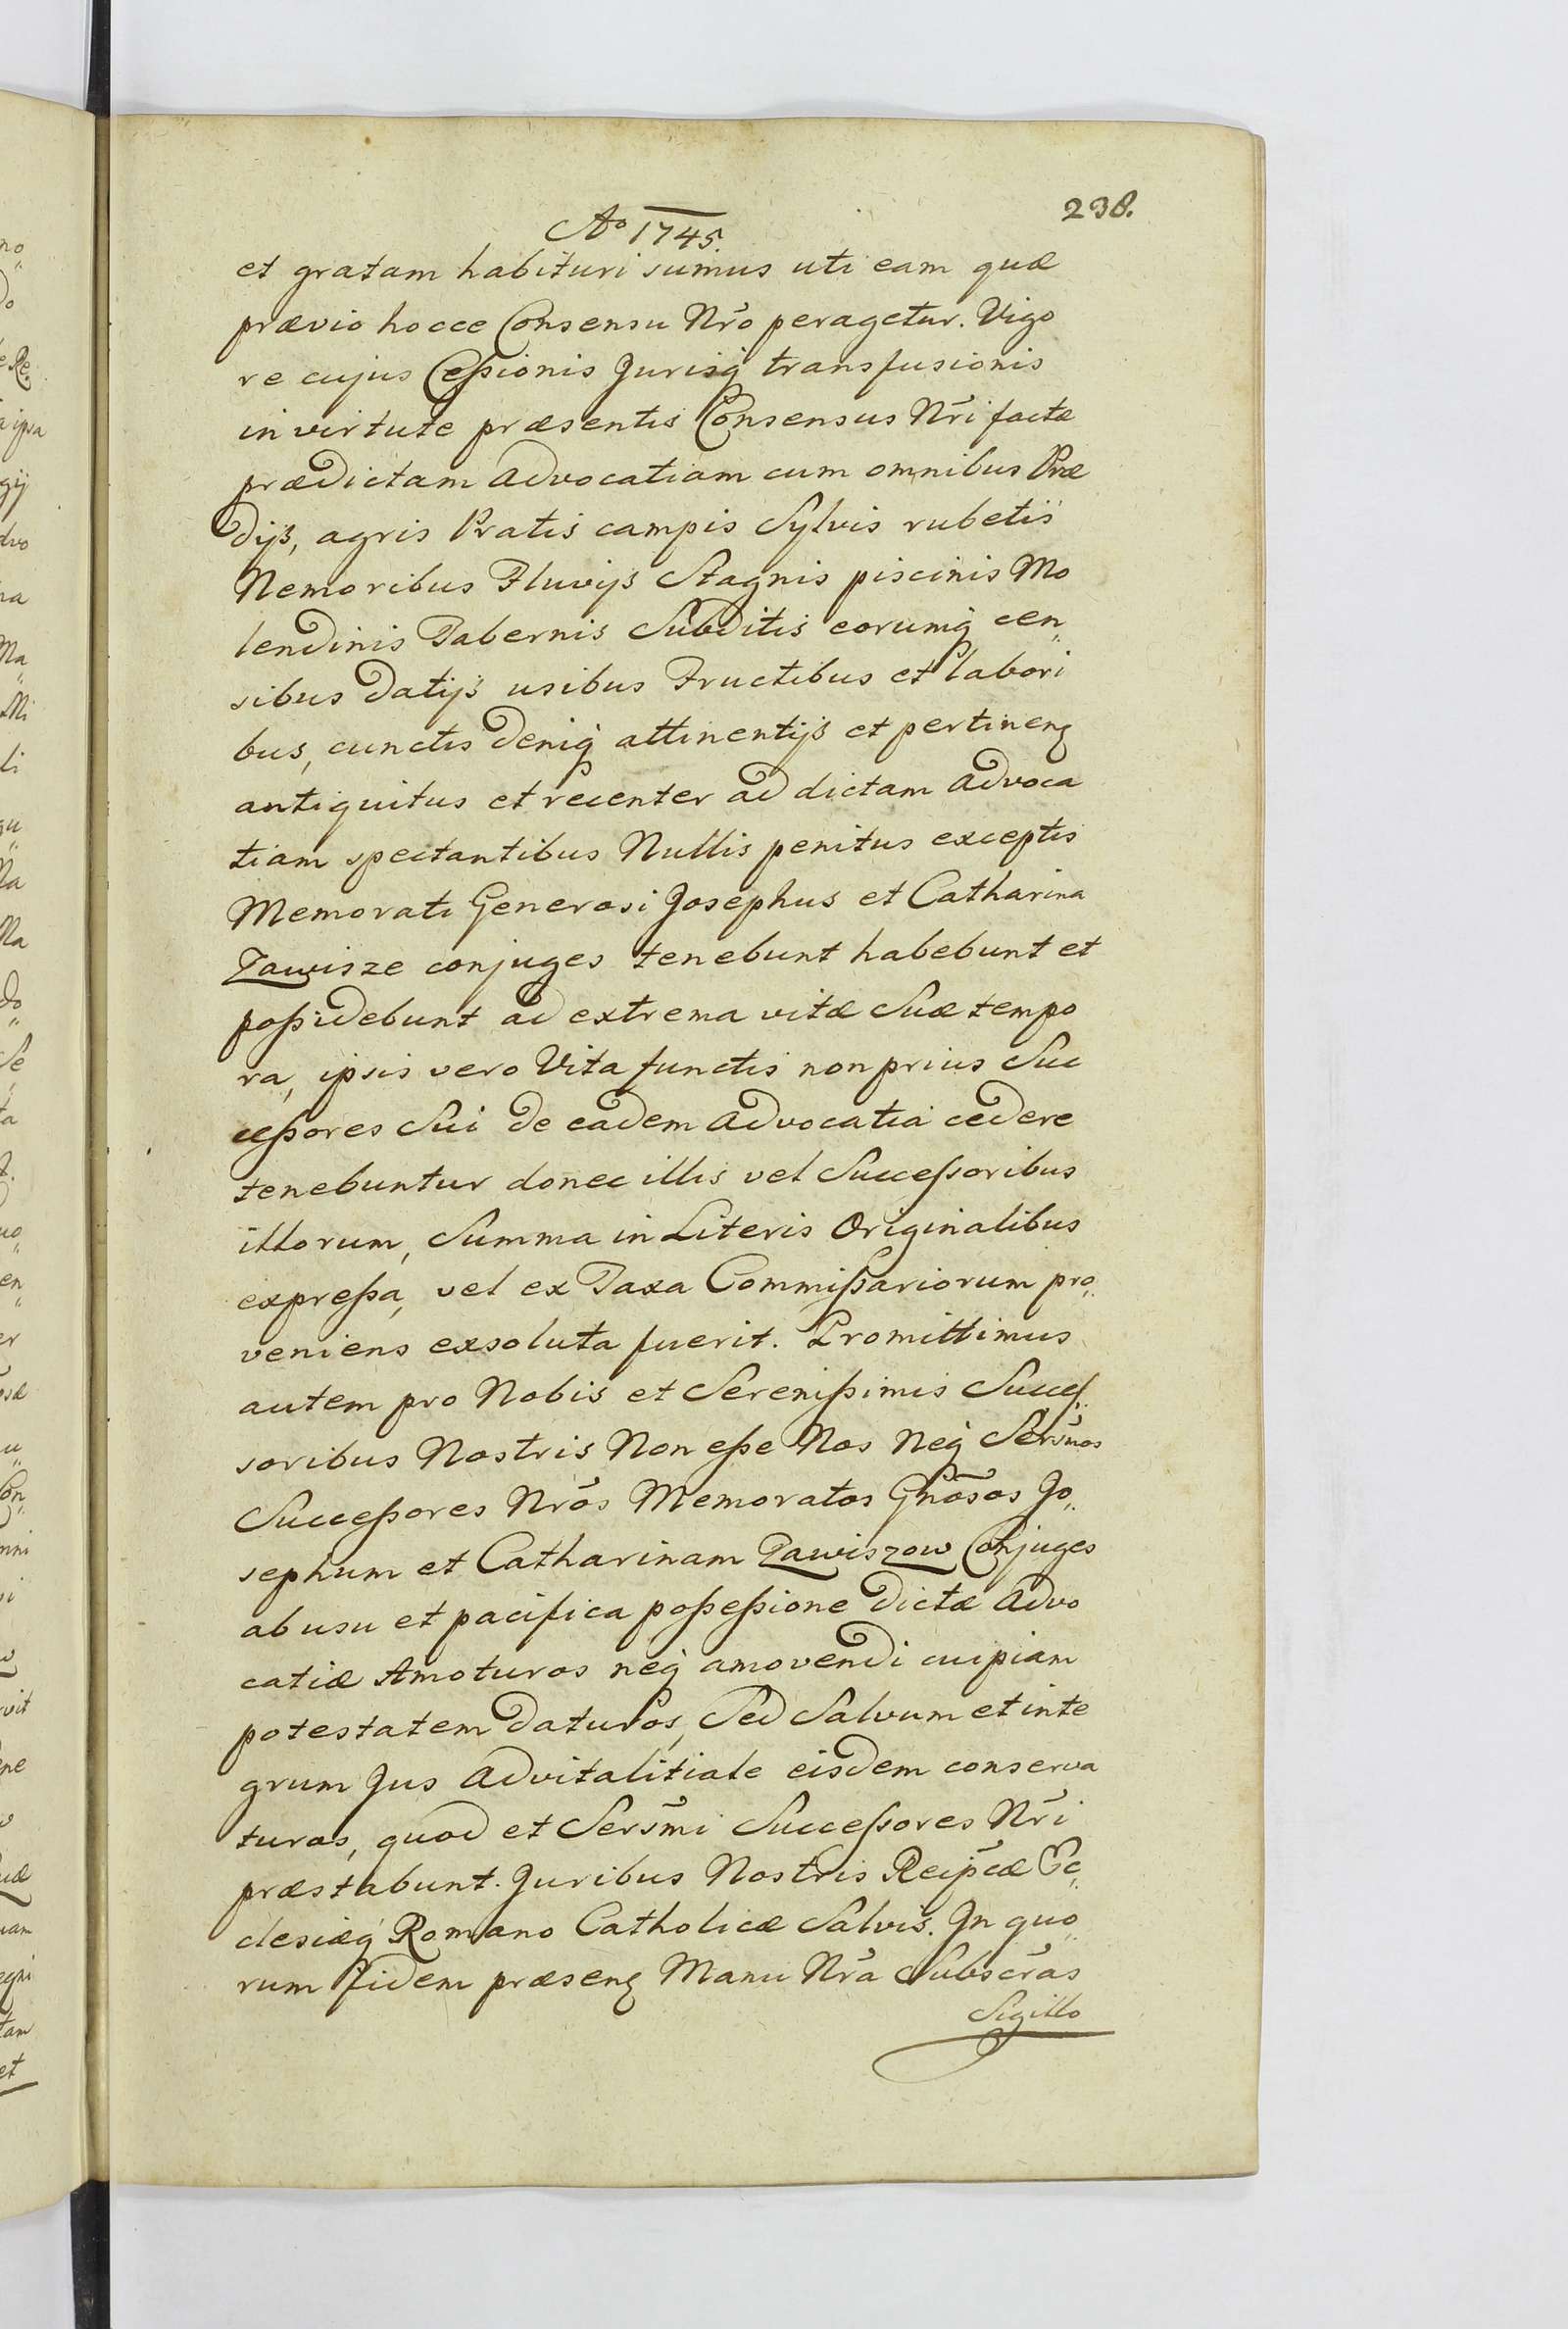 238.
Ao 1745.
et gratam habituri sumus uti eam quæ
prævio hocce Consensu Nr̃o peragetur. Vigo
re cujus Cessionis Jurisq transfusionis
in virtute præsentis Consensus Nr̃i factæ
prædictam Advocatiam cum omnibus Præ
dijs, agris Pratis campis Sylvis rubetis
Nemoribus Fluvijs Stagnis piscinis Mo
lendinis Tabernis Subditis eorumq cen„
sibus datijs usibus Fructibus et labori
bus, cunctis deniq attinentijs et pertinenȝ
antiquitus et recenter ad dictam Advoca
tiam spectantibus Nullis penitus exceptis
Memorati Generosi Josephus et Catharina
Zawisze conjuges tenebunt habebunt et
possidebunt ad extrema vitæ Suæ tempo
ra, ipsis vero Vita functis non prius Suc
cessores Sui de eadem Advocatia cedere
tenebuntur donec illis vel Successoribus
illorum, Summa in Literis Originalibus
expressa, vel ex Taxa Commissariorum pro„
veniens exsoluta fuerit. Promittimus
autem pro Nobis et Serenissimis Succes„
soribus Nostris Non esse Nos Neq Sersm̃os
Successores Nr̃os Memoratos Gnõsos Jo„
sephum et Catharinam Zawiszow Conjuges
ab usu et pacifica possessione dictæ Advo
catiæ Amoturos neq amovendi cuipiam
potestatem daturos, Sed Salvum et inte
grum Jus Advitalitiale eisdem conserva
turos, quod et Sersm̃i Successores Nr̃i
præstabunt. Juribus Nostris Reip̃cæ Ec„
clesiæq Romano Catholicæ Salvis. In quo„
rum fidem præsenȝ Manu Nr̃a Subscr̃as
Sigillo